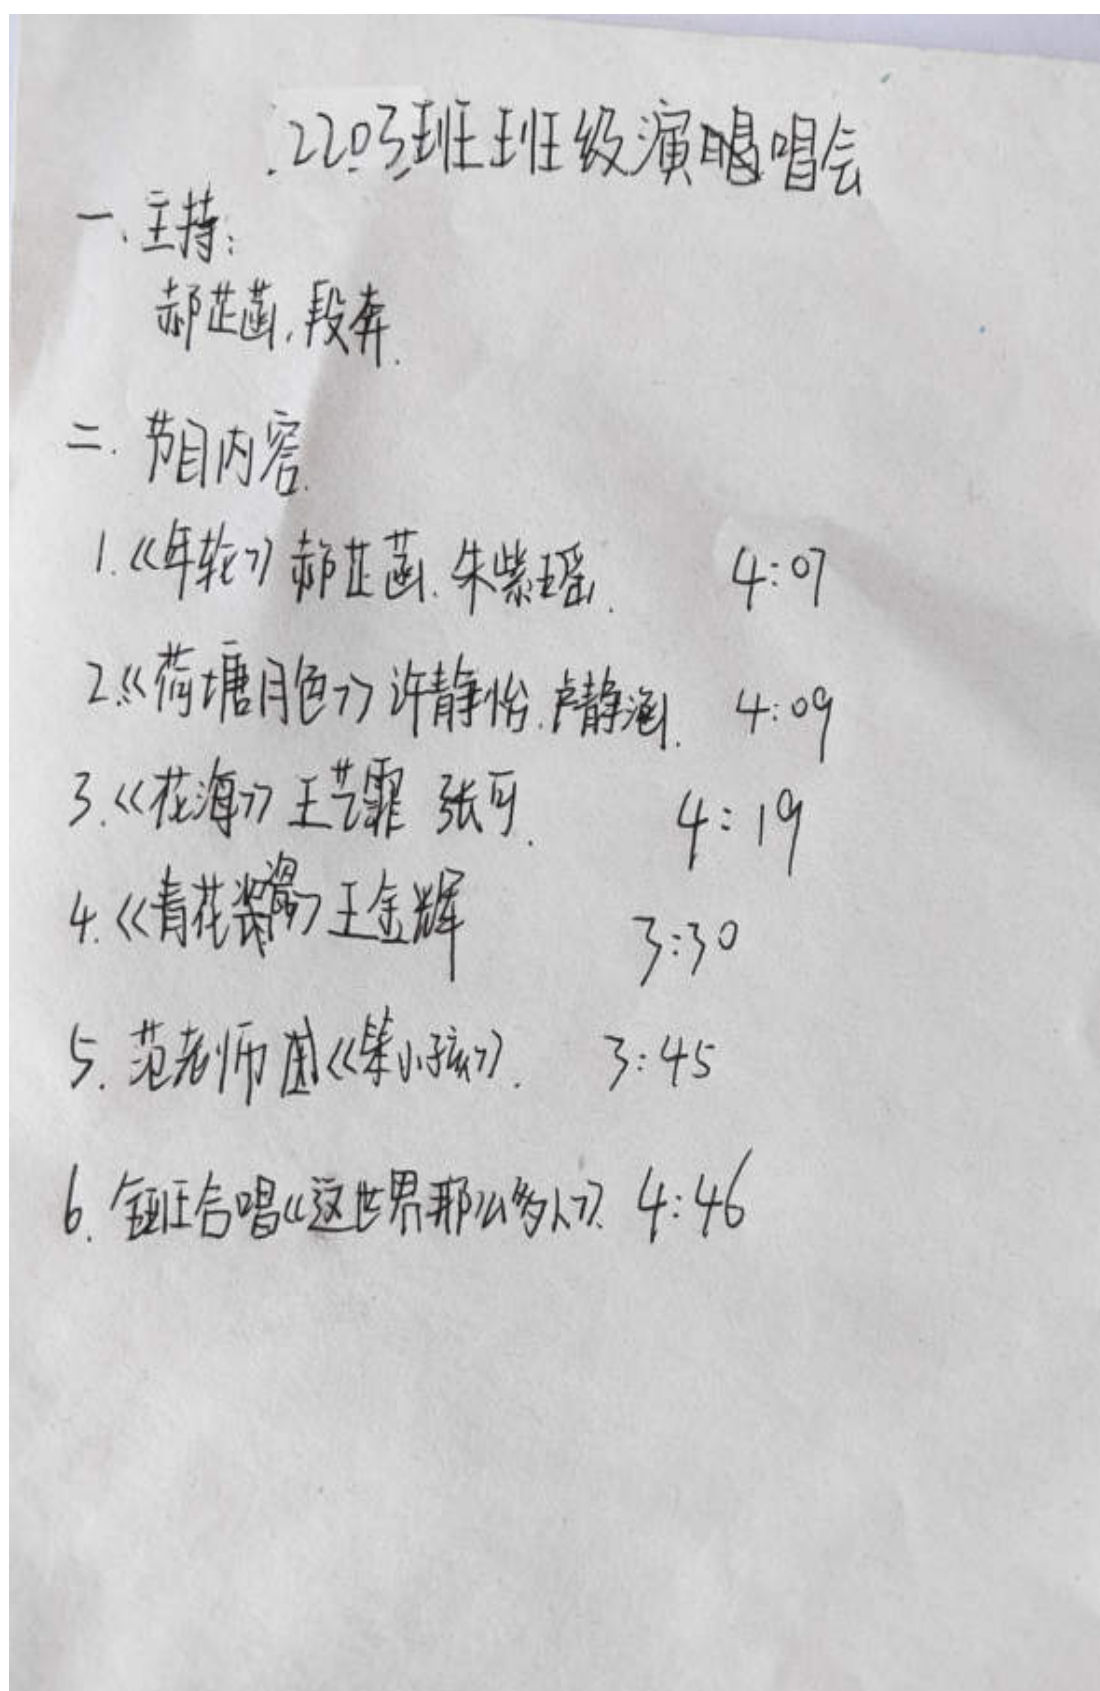 2203班班级演唱会
一、主持:
郝芷菡,段奔.
二.节目内容.
1.《年轮》郝芷菡.朱紫瑶. 4:07
2.《荷塘月色》许静怡.卢静涵. 4:09
3.《花海》王艺霏 张可. 4:19
4.《青花瓷》王金辉 3:30
5.范老师《笨小孩》. 3:45
6.全班合唱《这世界那么多人》. 4:46